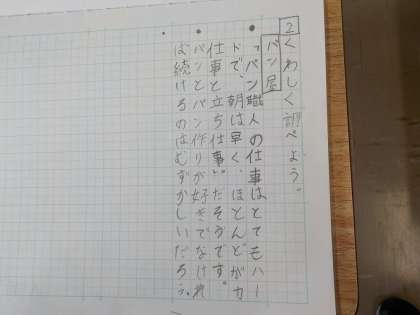 2 くわしく調べよう。
パン屋
・パン職人の仕事はとてもハー
ドで、朝は早く、ほとんどが力
仕事と立ち仕事だそうです。
・パンとパン作りが好きでなけれ
ば続けるのはむずかしいだろう。